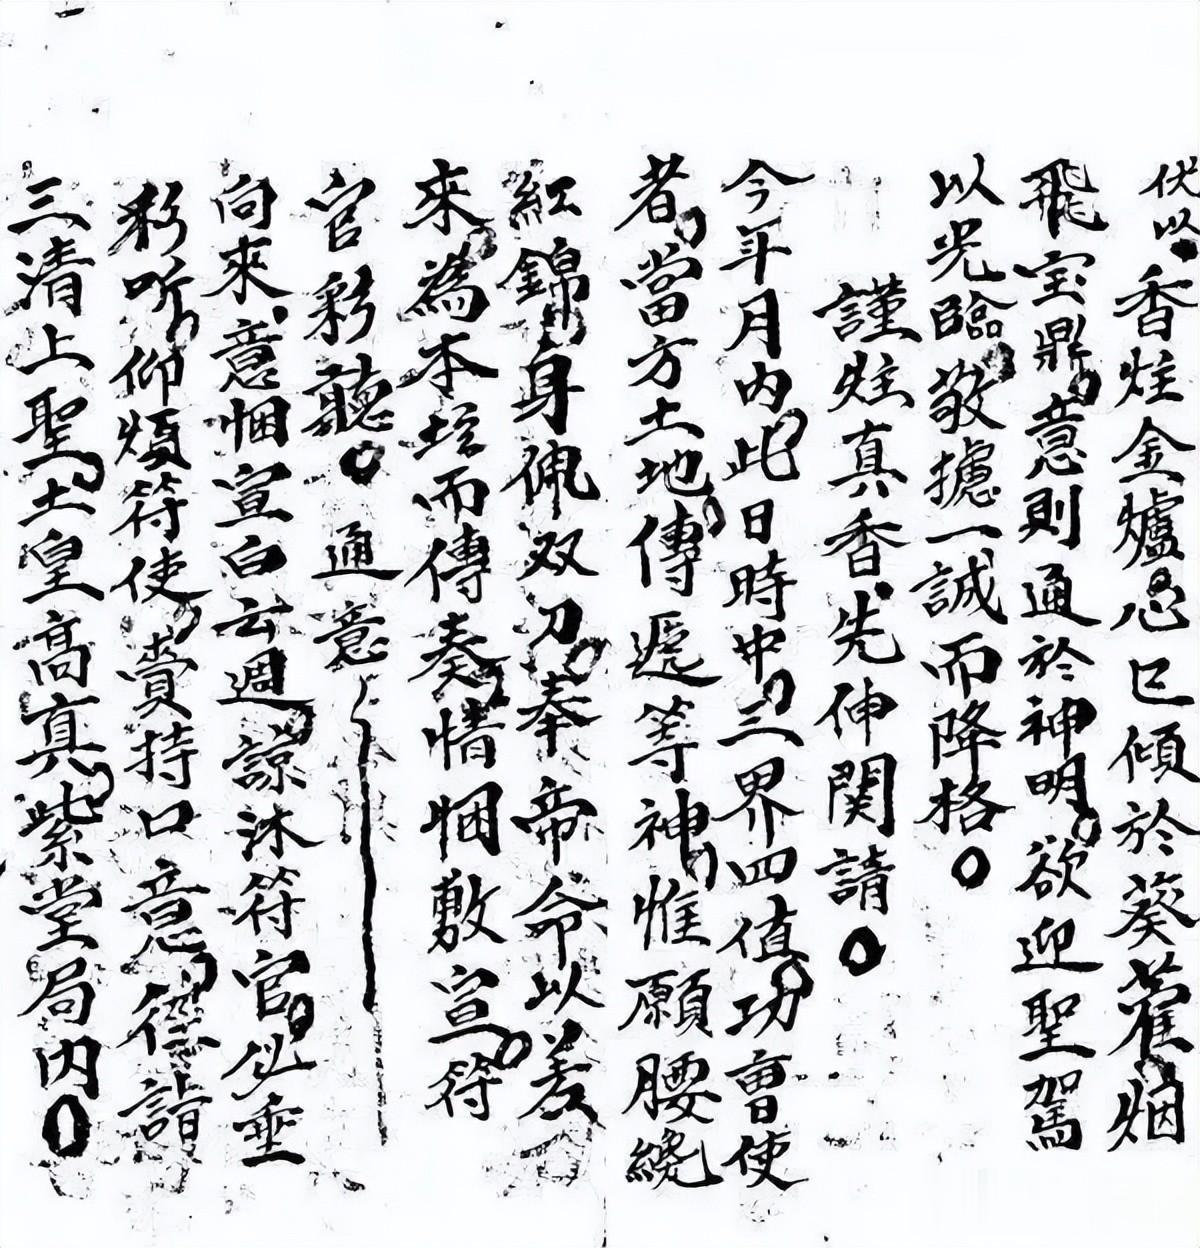 伏以香炷金爐心已傾於葵藿烟
飛宝鼎意則通於神明欲迎聖駕
以光臨敬攄一誠而降格
謹炷真香先伸関請
今年月内此日時中三界四值功曹使
者當方土地傳遞等神惟願腰繞
紅錦身佩双刀奉帝命以差
來為本坛而傳奏情悃敷宣符
官彩聽通意
向來意悃宣白云週諒沐符官必垂
彩听仰煩符使賫持口意徑詣
三清上聖土皇高真紫堂局内